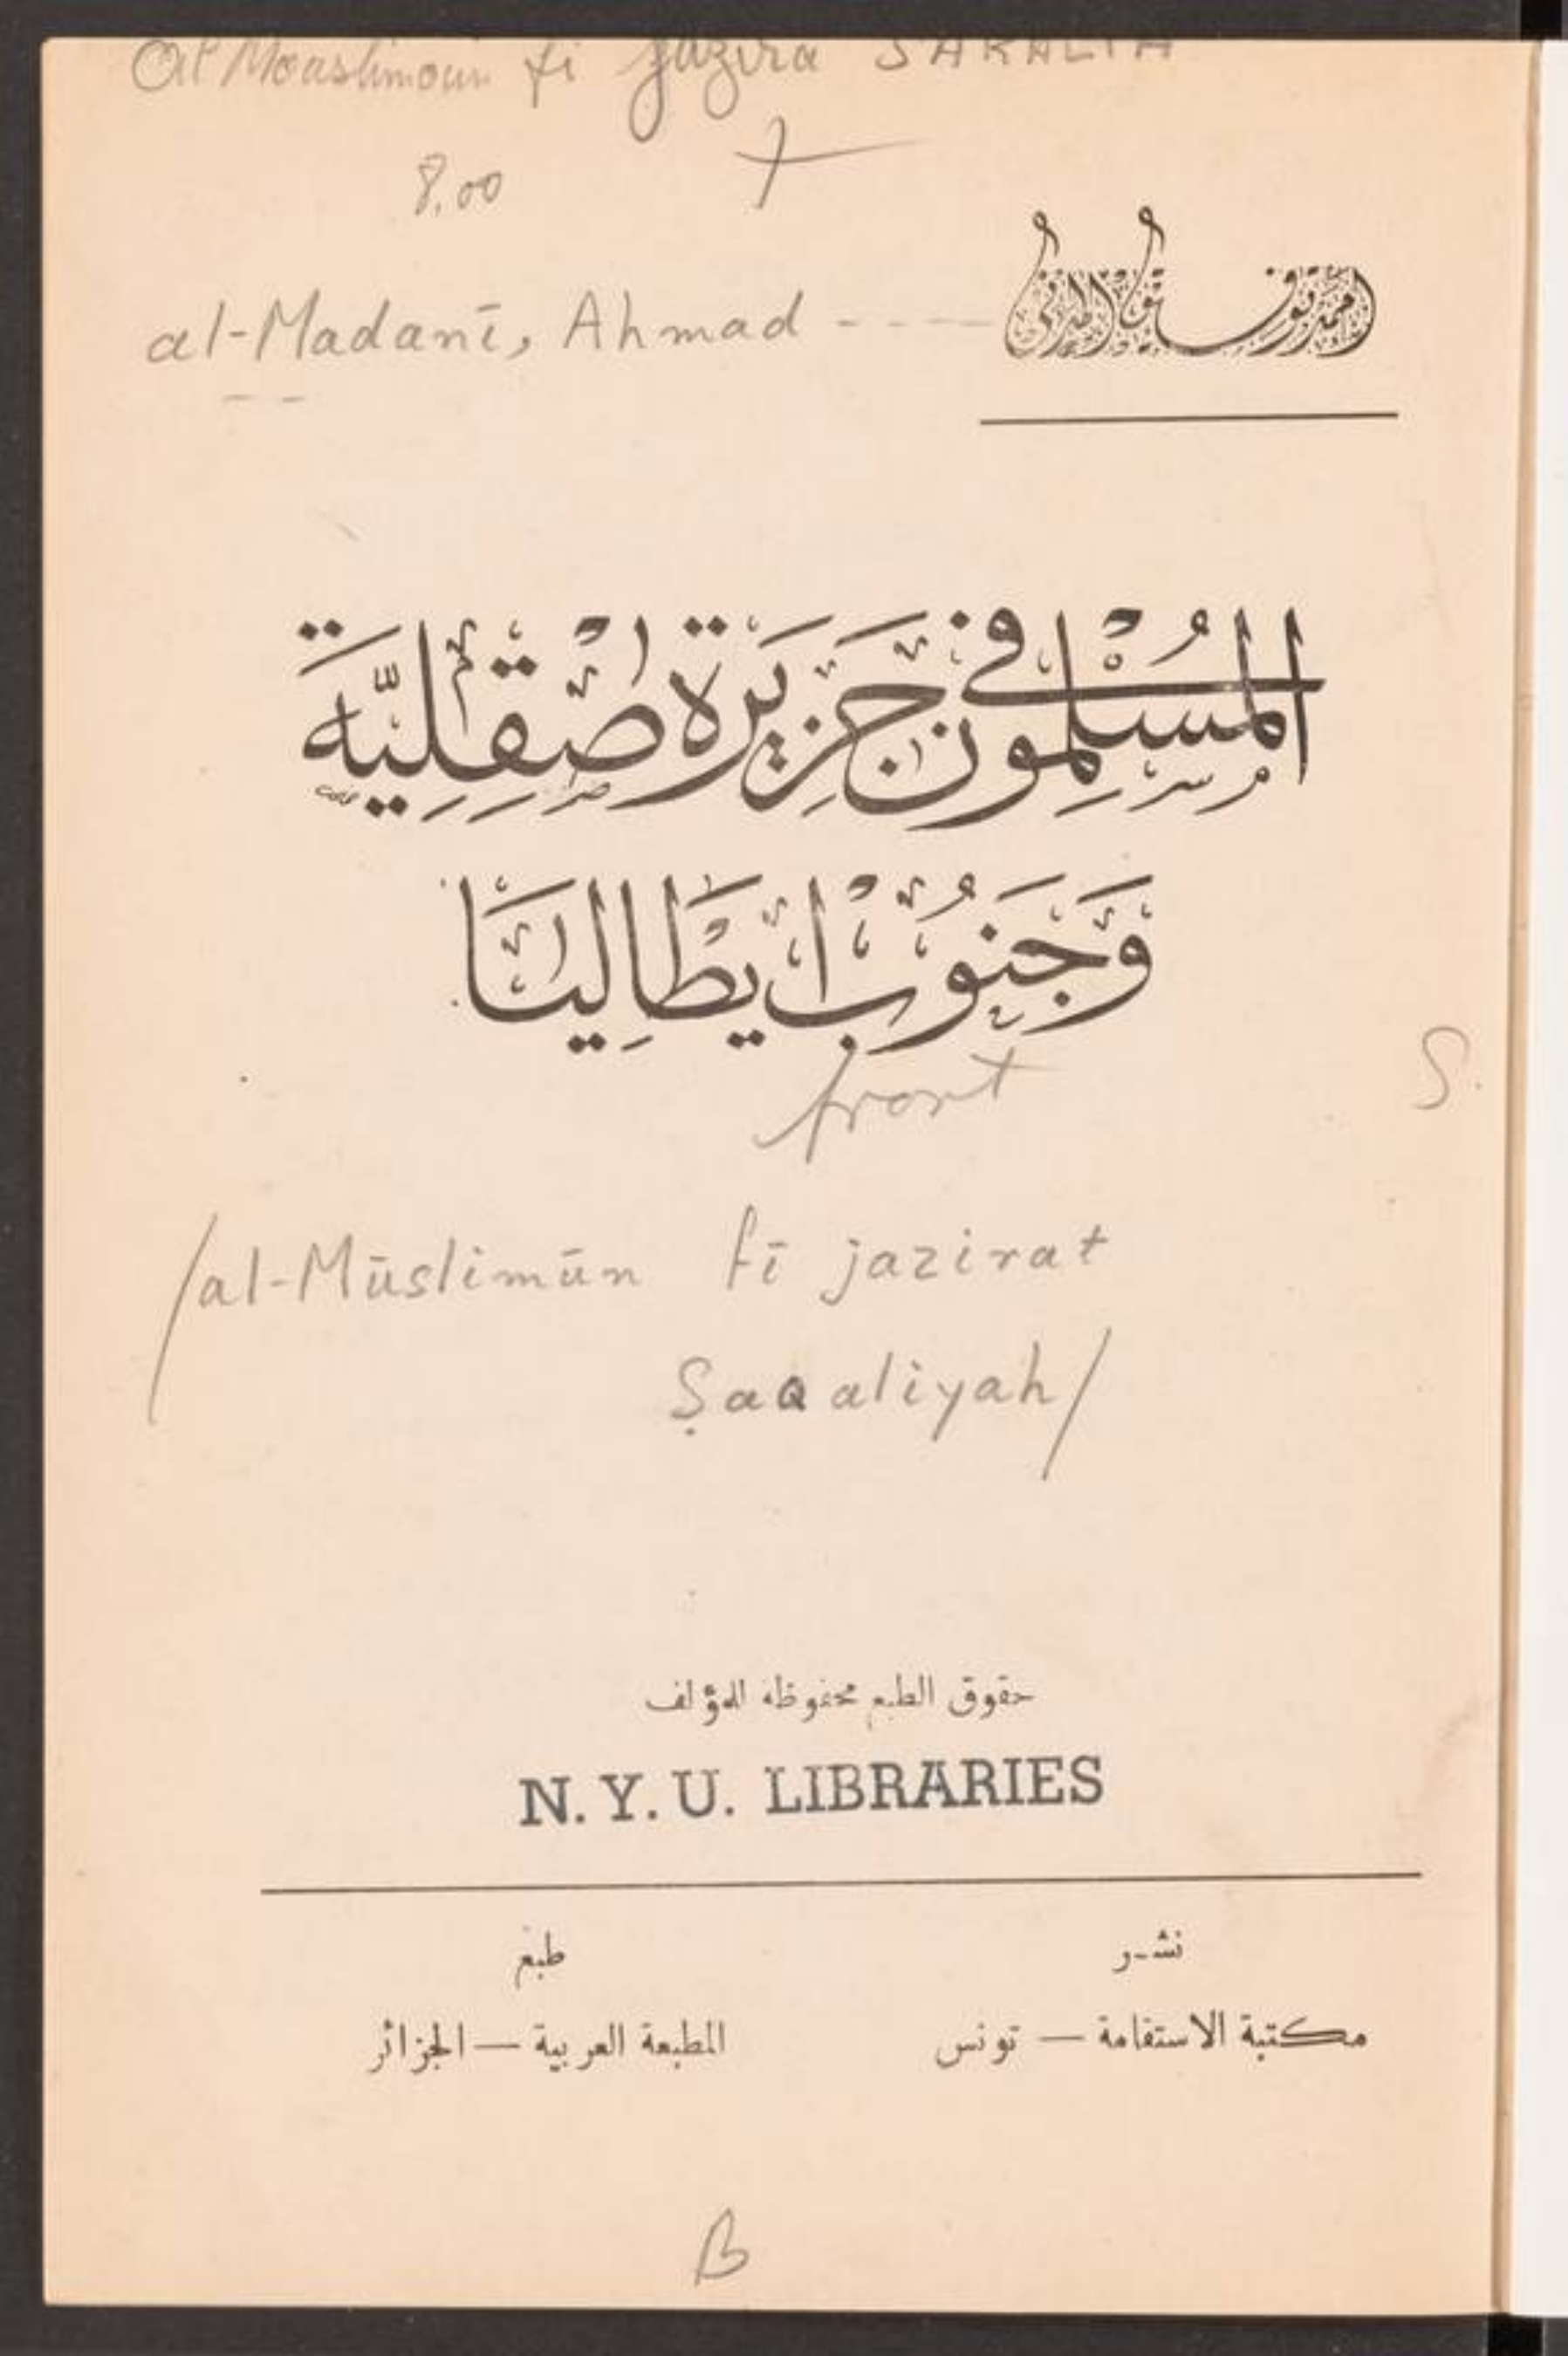 Al Mouslimoun fi jazira SAKALIA
8.00
al-Madanī, Ahmad ----
احمد توفيق المدني
المُسْلِمُون في جَزِيَرة صْقِلِيَّة
وَجَنُوبْ ايطَاليَا
front
S.
/al-Mūslimūn fī jazirat
Ṣaqaliyah/
حقوق الطبع محفوظة للمؤلف
N. Y. U. LIBRARIES
نشر
طبع
مكتبة الاستقامة — تونس
المطبعة العربية — الجزائر
B